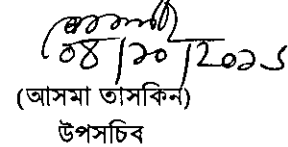 ০৪/১০/২০১৬
(আসমা তাসকিন)
উপসচিব